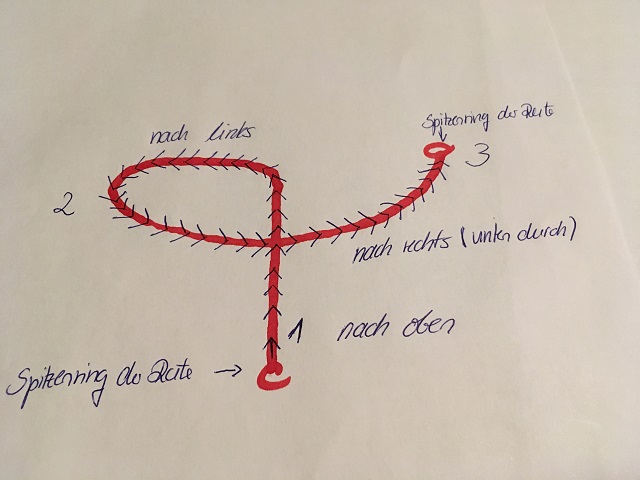 Spitzenring der Rute
nach links
3
2
nach rechts (unten durch)
1 nach oben
Spitzenring der Rute →